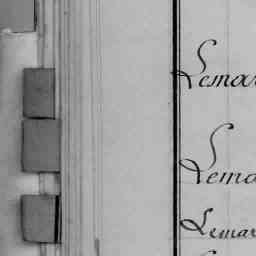 Lemar
Lema
Lemar